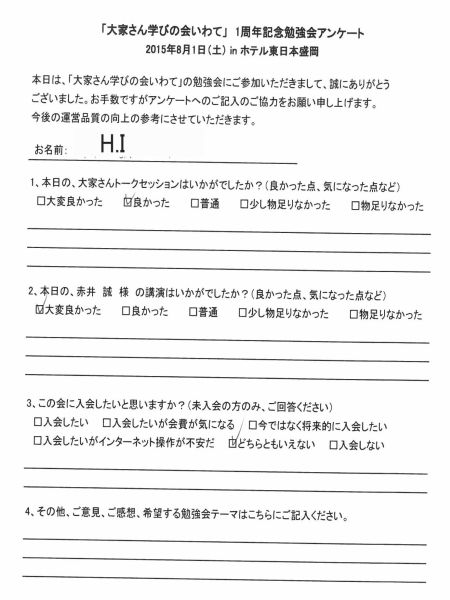 「大家さん学びの会いわて」 1周年記念勉強会アンケート
2015年8月1日(土) in ホテル東日本盛岡
本日は、「大家さん学びの会いわて」の勉強会にご参加いただきまして、誠にありがとう
ございました。お手数ですがアンケートへのご記入のご協力をお願い申し上げます。
今後の運営品質の向上の参考にさせていただきます。
お名前: H.I
1、本日の、大家さんトークセッションはいかがでしたか?(良かった点、気になった点など)
□大変良かった ☑良かった □普通 □少し物足りなかった □物足りなかった
2、本日の、赤井 誠 様 の講演はいかがでしたか?(良かった点、気になった点など)
☑大変良かった □良かった □普通 □少し物足りなかった □物足りなかった
3、この会に入会したいと思いますか?(未入会の方のみ、ご回答ください)
□入会したい □入会したいが会費が気になる □今ではなく将来的に入会したい
□入会したいがインターネット操作が不安だ ☑どちらともいえない □入会しない
4、その他、ご意見、ご感想、希望する勉強会テーマはこちらにご記入ください。